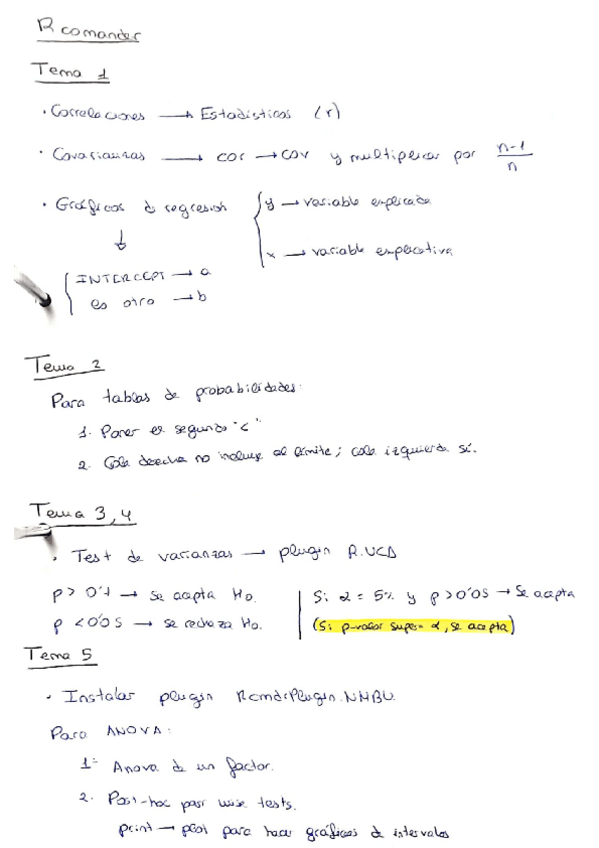 R comander
Tema 1
· Correlaciones → Estadísticos (r)
· Covarianzas → cor → cov y multiplicar por n-1/n
· Gráficos de regresión { y → variable explicada
↓ x → variable explicativa
{ INTERCEPT → a
es otro → b
Tema 2
Para tablas de probabilidades:
1. Poner el segundo "<"
2. Cola derecha no incluye al límite; cola izquierda sí.
Tema 3,4
· Test de varianzas → plugin R.UCA
p > 0'1 → se acepta Ho. | Si α = 5% y p > 0'05 → se acepta
p < 0'05 → se rechaza Ho. | (Si p-valor supera α, se acepta)
Tema 5
· Instalar plugin RcmdrPlugin.NMBU.
Para ANOVA:
1- Anova de un factor.
2. Post-hoc pair wise tests.
print → plot para hacer gráficos de intervalos